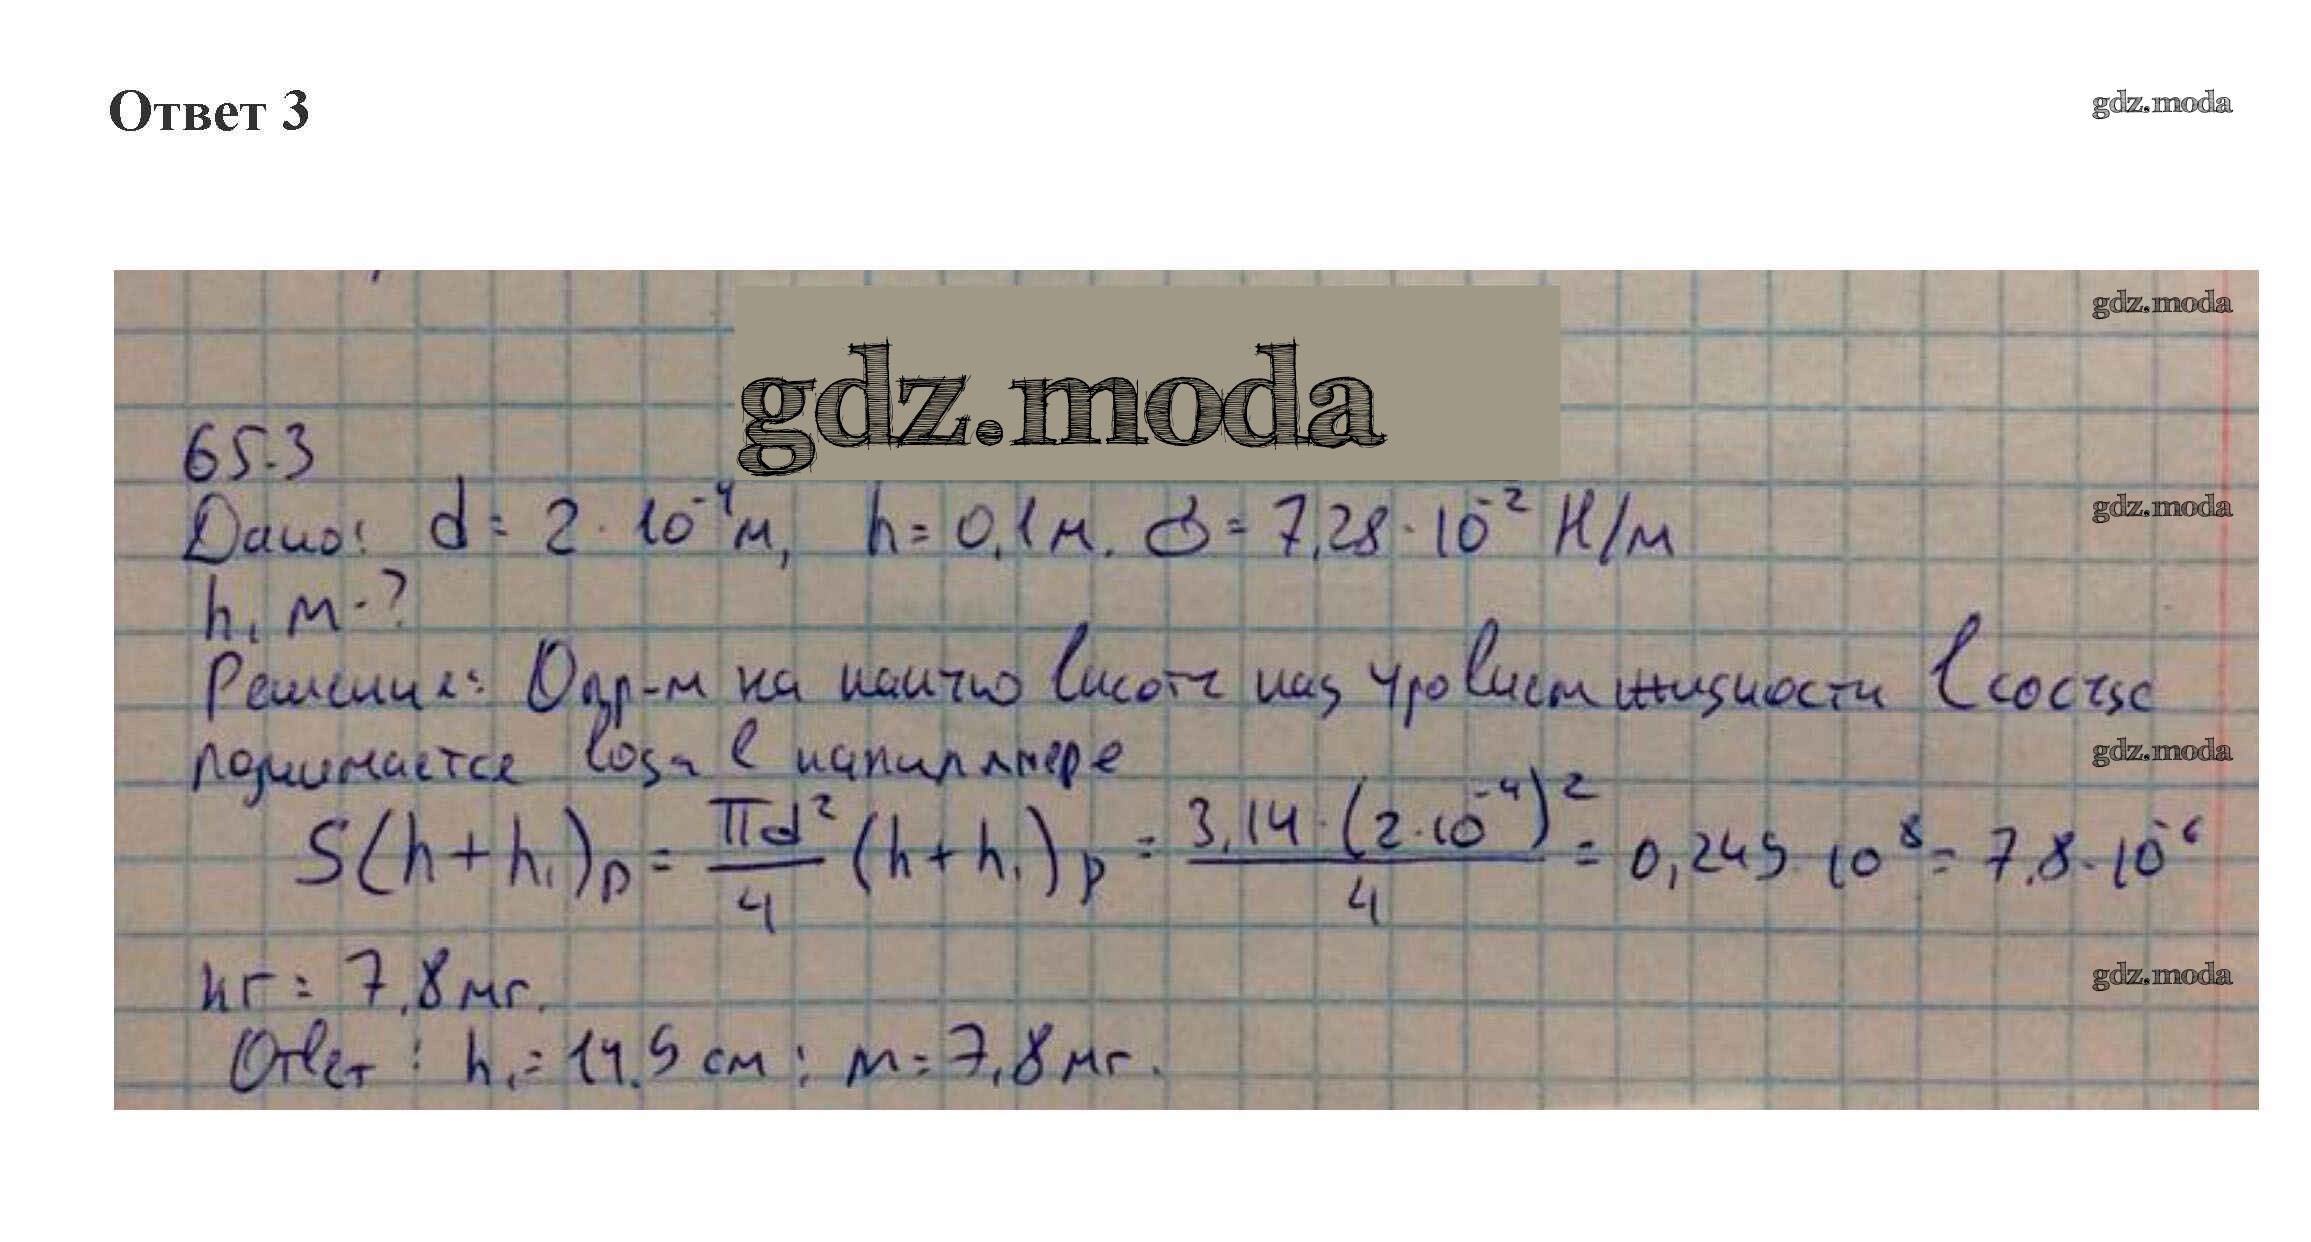 Ответ 3
gdz.moda
gdz.moda
gdz.moda
65.3
Дано: d = 2 · 10⁻⁴ м, h = 0,1 м. σ = 7,28 · 10⁻² Н/м
gdz.moda
h₁ м - ?
Решение: Опр-м на какую высоту над уровнем жидкости в сосуде
поднимается вода в капилляре
gdz.moda
S(h + h₁)ρ = πd²/4 (h + h₁)ρ = 3,14 · (2 · 10⁻⁴)²/4 = 0,245 · 10⁸ = 7,8 · 10⁻⁶
кг = 7,8 мг.
gdz.moda
Ответ: h₁ = 14,5 см; m = 7,8 мг.